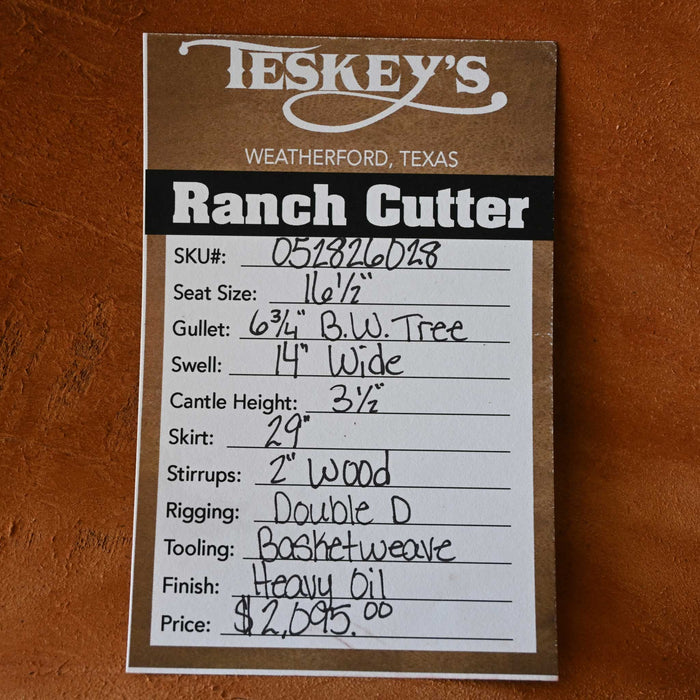 TESKEY'S
WEATHERFORD, TEXAS
Ranch Cutter
SKU#: 051826018
Seat Size: 16 1/2"
Gullet: 6 3/4" B.W. Tree
Swell: 14" Wide
Cantle Height: 3 1/2"
Skirt: 29"
Stirrups: 2" Wood
Rigging: Double D
Tooling: Basketweave
Finish: Heavy Oil
Price: $2,095.00